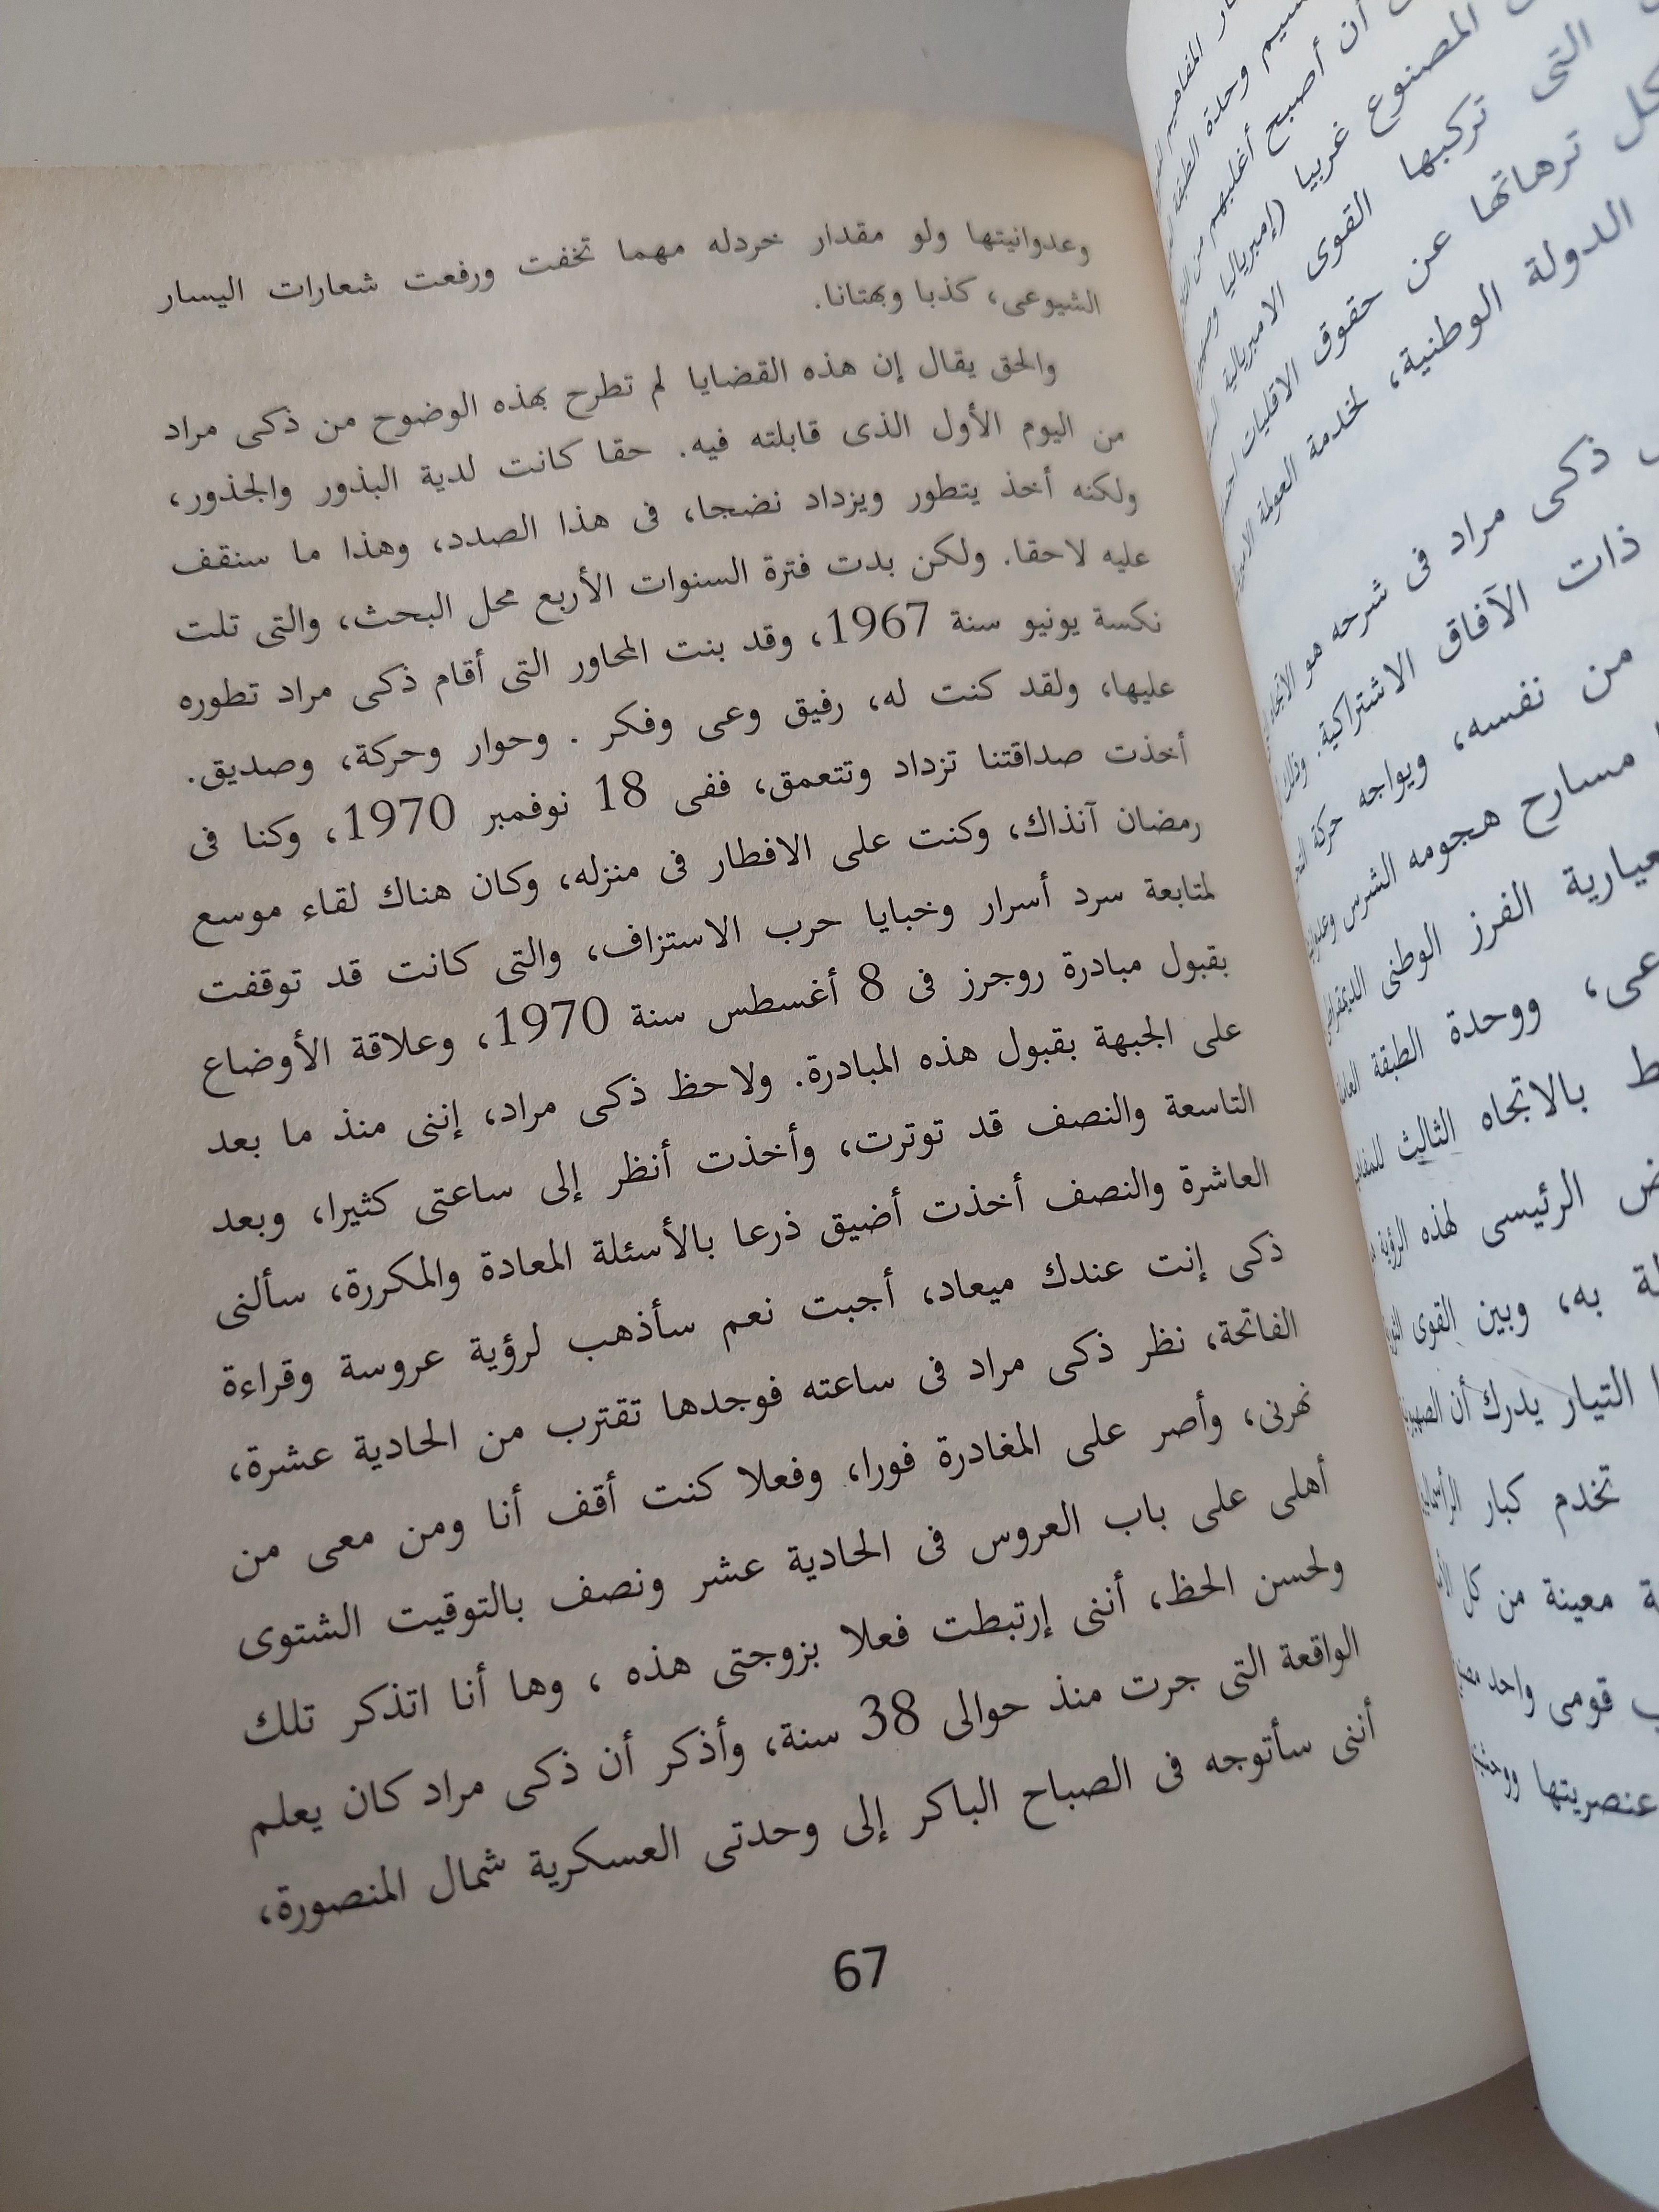 وعدوانيتها ولو مقدار خردله مهما تخفت ورفعت شعارات اليسار
الشيوعى، كذبا وبهتانا.
والحق يقال إن هذه القضايا لم تطرح بهذه الوضوح من ذكى مراد
من اليوم الأول الذى قابلته فيه. حقا كانت لدية البذور والجذور،
ولكنه أخذ يتطور ويزداد نضجا، فى هذا الصدد، وهذا ما سنقف
عليه لاحقا. ولكن بدت فترة السنوات الأربع محل البحث، والتى تلت
نكسة يونيو سنة 1967، وقد بنت المحاور التى أقام ذكى مراد تطوره
عليها، ولقد كنت له، رفيق وعى وفكر . وحوار وحركة، وصديق.
أخذت صداقتنا تزداد وتتعمق، ففى 18 نوفمبر 1970، وكنا فى
رمضان آنذاك، وكنت على الافطار فى منزله، وكان هناك لقاء موسع
لمتابعة سرد أسرار وخبايا حرب الاستزاف، والتى كانت قد توقفت
بقبول مبادرة روجرز فى 8 أغسطس سنة 1970، وعلاقة الأوضاع
على الجبهة بقبول هذه المبادرة. ولاحظ ذكى مراد، إننى منذ ما بعد
التاسعة والنصف قد توترت، وأخذت أنظر إلى ساعتى كثيرا، وبعد
العاشرة والنصف أخذت أضيق ذرعا بالأسئلة المعادة والمكررة، سألنى
ذكى إنت عندك ميعاد، أجبت نعم سأذهب لرؤية عروسة وقراءة
الفاتحة، نظر ذكى مراد فى ساعته فوجدها تقترب من الحادية عشرة،
نهرنى، وأصر على المغادرة فورا، وفعلا كنت أقف أنا ومن معى من
أهلى على باب العروس فى الحادية عشر ونصف بالتوقيت الشتوى
ولحسن الحظ، أننى إرتبطت فعلا بزوجتى هذه ، وها أنا اتذكر تلك
الواقعة التى جرت منذ حوالى 38 سنة، وأذكر أن ذكى مراد كان يعلم
أننى سأتوجه فى الصباح الباكر إلى وحدتى العسكرية شمال المنصورة،
67
أن أصبح أغلبهم من
المصنوع غربيا (إمبرياليا
التى تركبها القوى الامبريالية
ترهاتها عن حقوق الاقليات
الدولة الوطنية، لخدمة العولمة
ذكى مراد فى شرحه هو
ذات الآفاق الاشتراكية.
من نفسه، ويواجه حركة
مسارح هجومه الشرس
الفرز الوطنى
ووحدة الطبقة
بالاتجاه الثالث
الرئيسى لهذه الرؤية
به، وبين القوى
التيار يدرك أن
تخدم كبار
معينة من كل
قومى واحد
عنصريتها